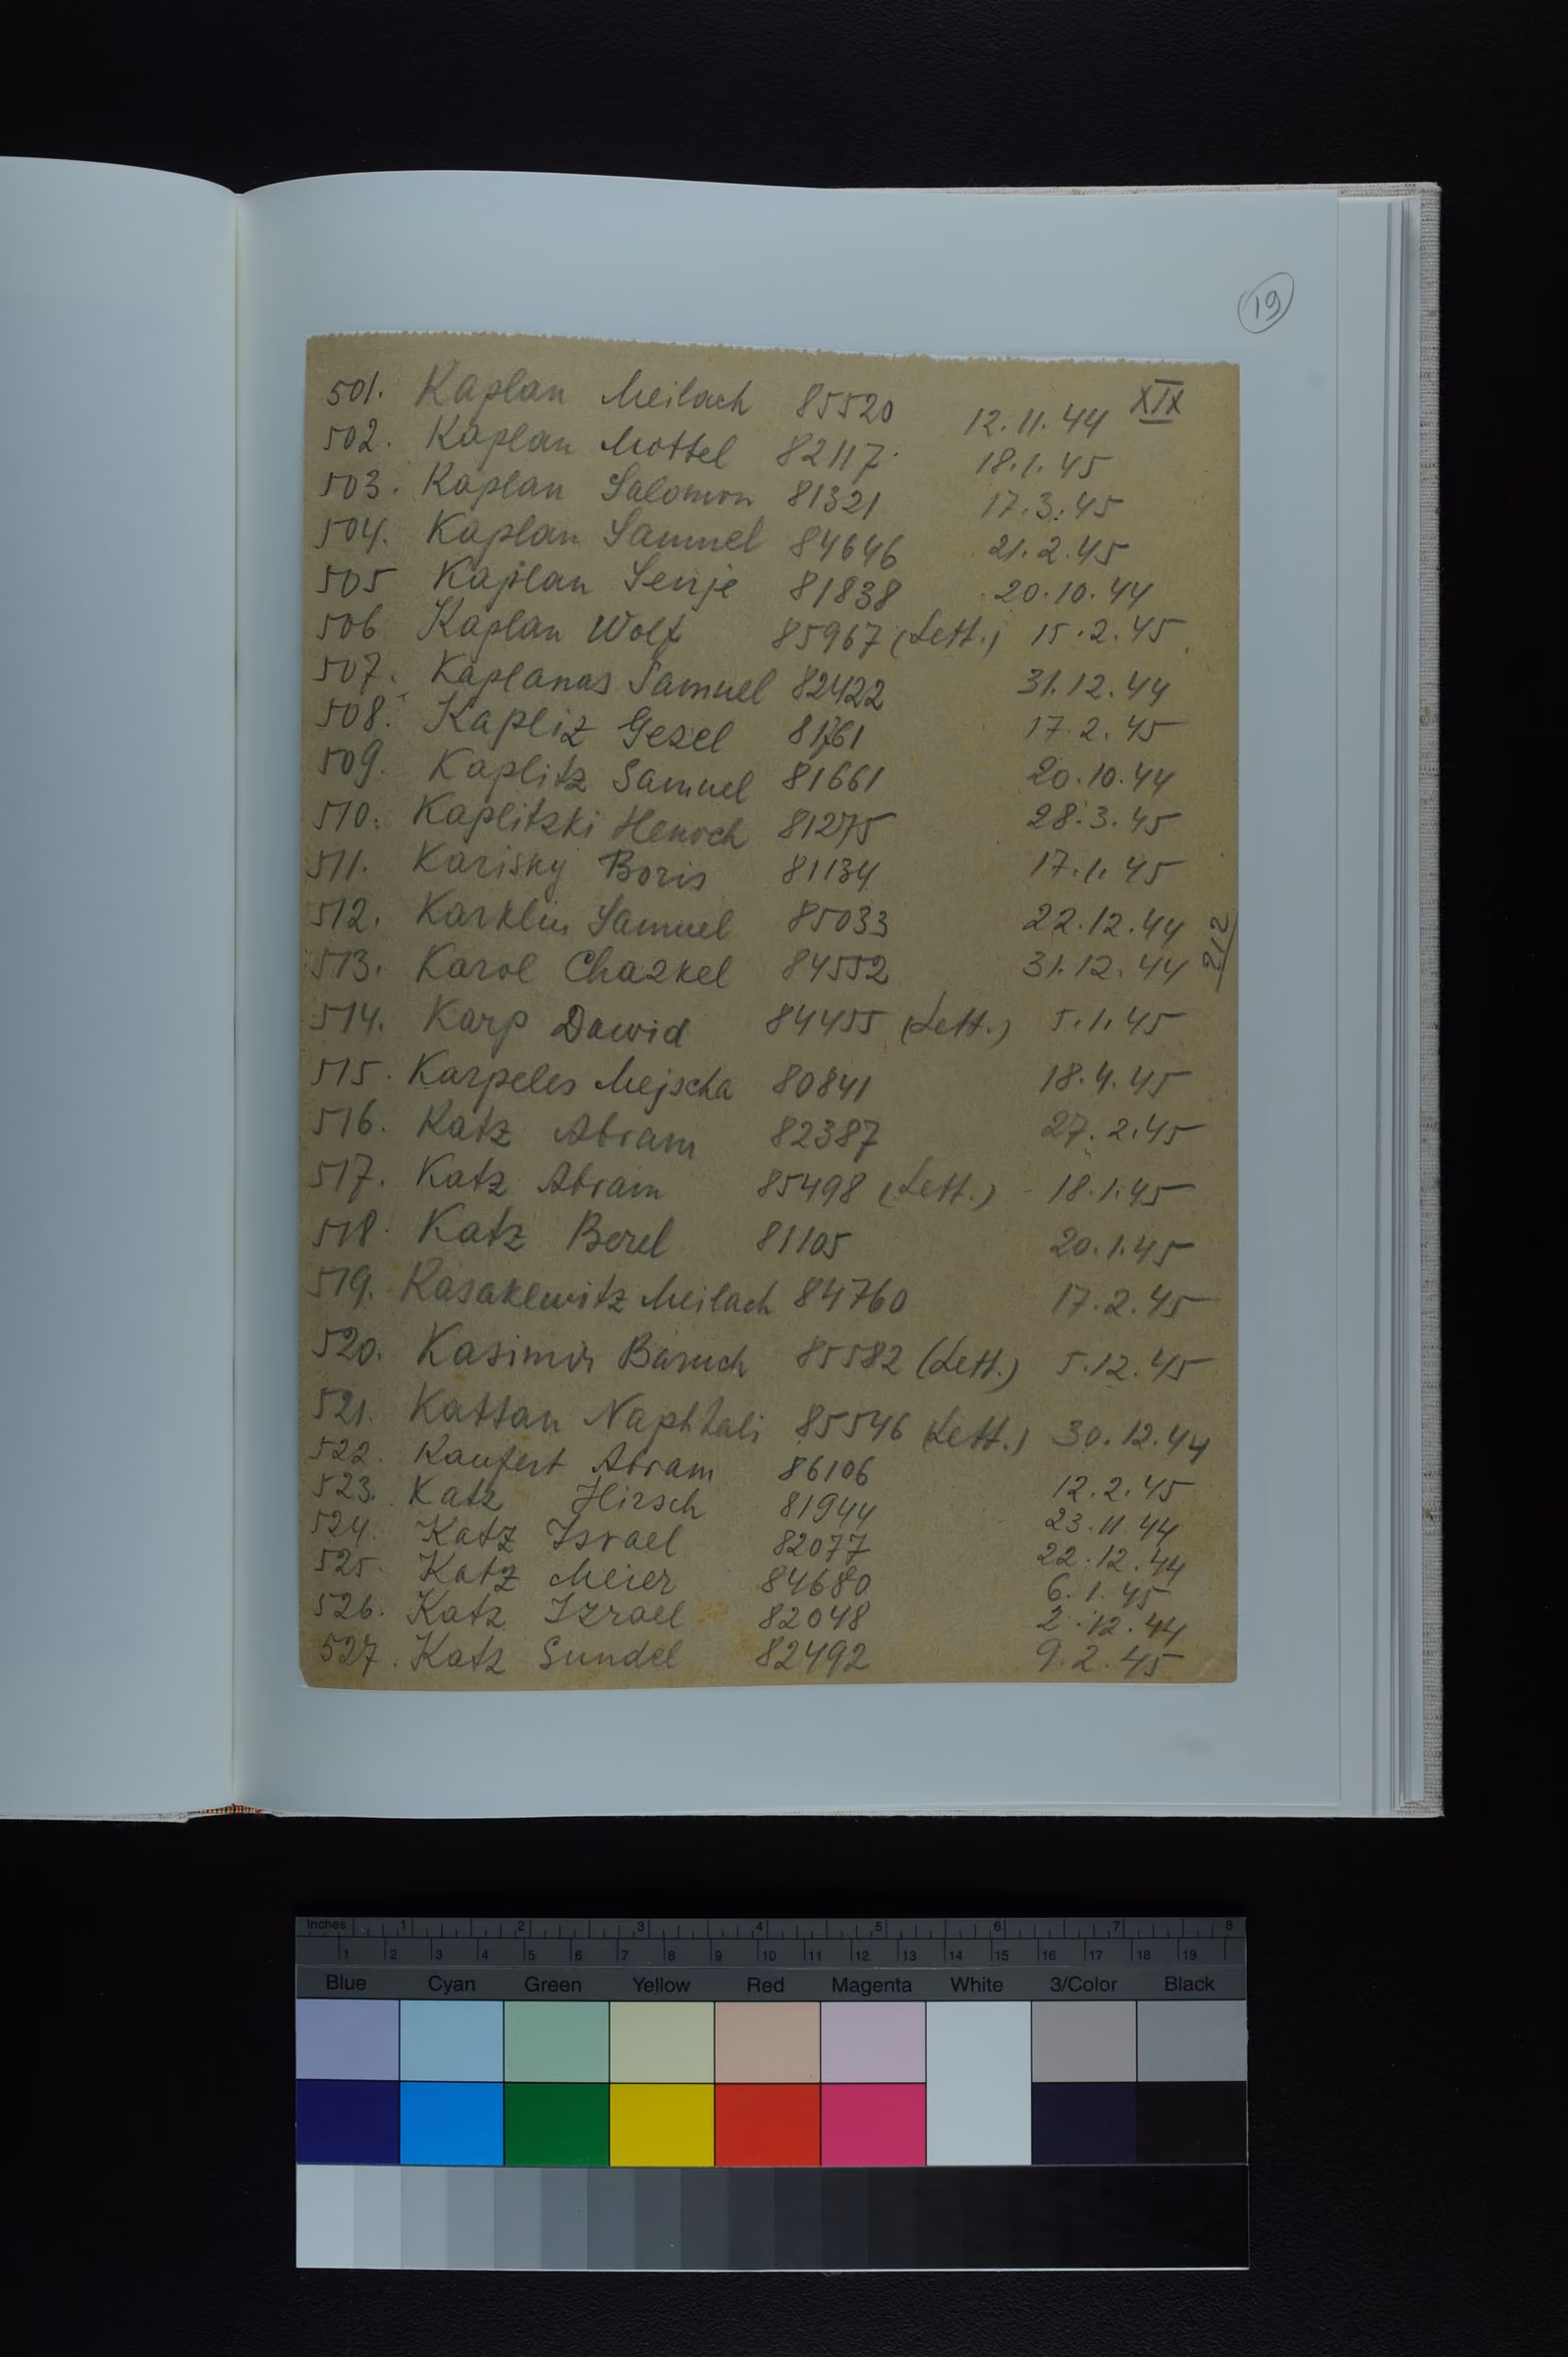 19
XIX
501. Kaplan Meilach 85520 12.11.44
502. Kaplan Mottel 82117 18.1.45
503. Kaplan Salomon 81321 17.3.45
504. Kaplan Samuel 84646 21.2.45
505 Kaplan Senje 81838 20.10.44
506 Kaplan Wolf 85967 (Lett.) 15.2.45
507. Kaplanas Samuel 82422 31.12.44
508. Kapliz Gesel 81761 17.2.45
509. Kaplitz Samuel 81661 20.10.44
510. Kaplitzki Henoch 81275 28.3.45
511. Karisky Boris 81134 17.1.45
512. Karklin Samuel 85033 22.12.44
513. Karol Chazkel 84552 31.12.44
212
514. Karp Dawid 84455 (Lett.) 5.1.45
515. Karpeles Mejscha 80841 18.4.45
516. Katz Abram 82387 27.2.45
517. Katz Abram 85498 (Lett.) 18.1.45
518. Katz Berel 81105 20.1.45
519. Kasakewitz Meilach 84760 17.2.45
520. Kasimir Baruch 85582 (Lett.) 5.12.45
521. Kattan Naphtali 85546 (Lett.) 30.12.44
522. Kaufert Abram 86106 12.2.45
523. Katz Hirsch 81944 23.11.44
524. Katz Israel 82077 22.12.44
525. Katz Meier 84680 6.1.45
526. Katz Izrael 82048 2.12.44
527. Katz Sundel 82492 9.2.45
Inches 1 2 3 4 5 6 7 8
1 2 3 4 5 6 7 8 9 10 11 12 13 14 15 16 17 18 19
Blue Cyan Green Yellow Red Magenta White 3/Color Black